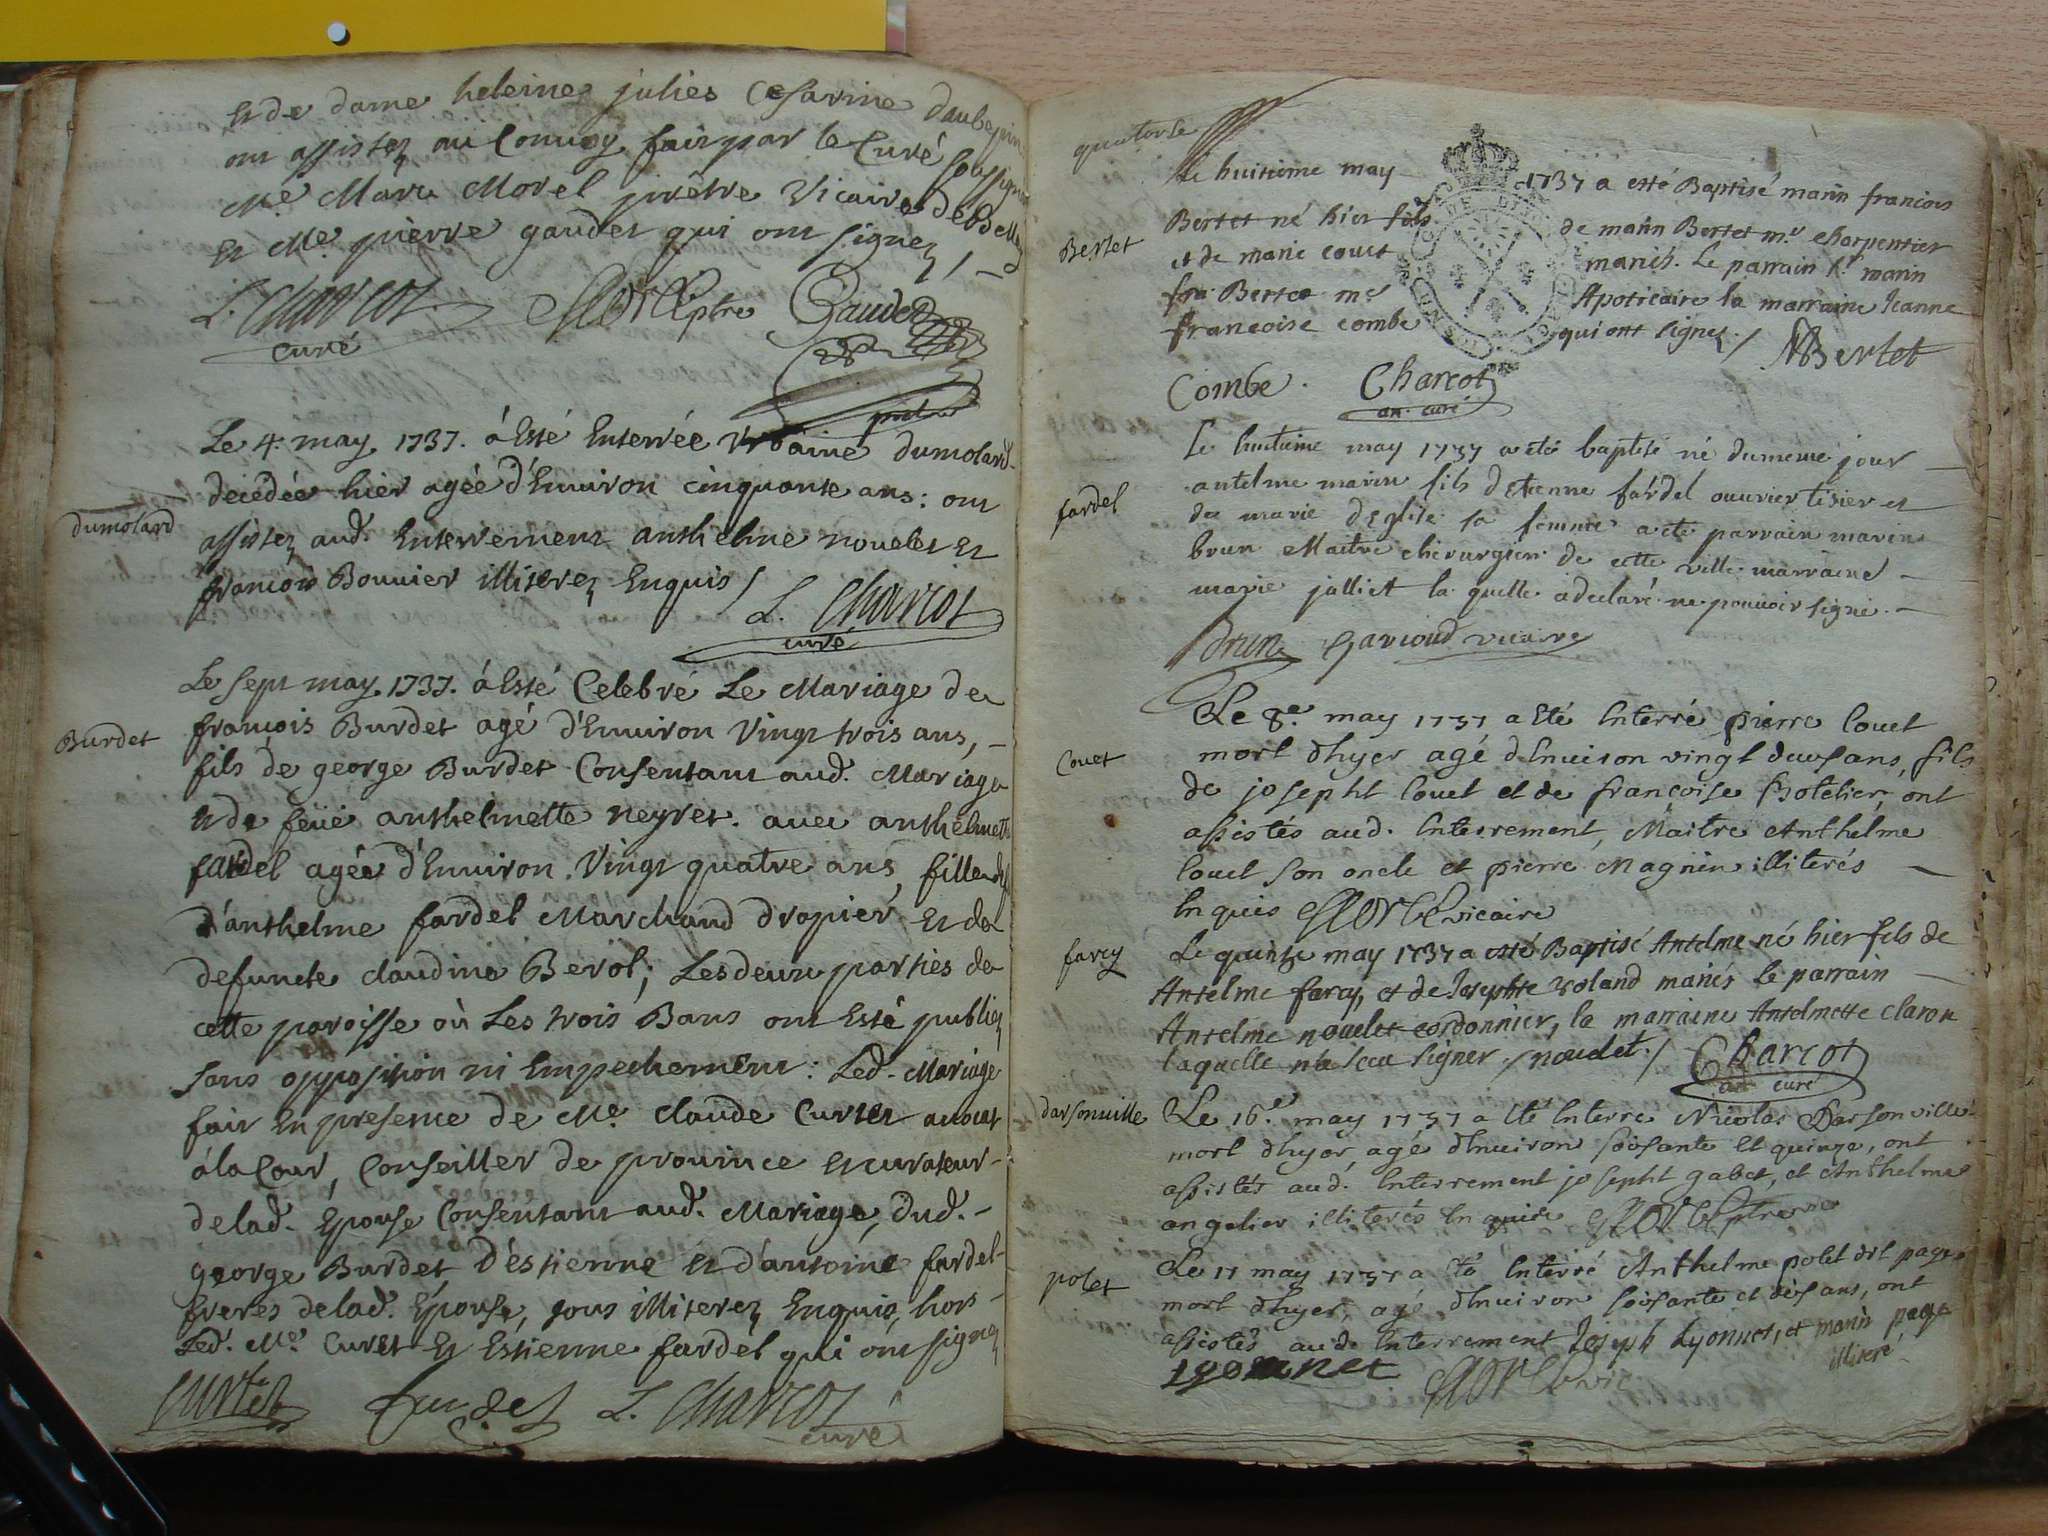 et de dame heleine julies Cesarine daubepin
ont assistez au Convoy fait par le Curé soussigné
Me. Marc Morel prêtre Vicaire de Belley
et Me. pierre gaudet qui ont signez /
L. Charcot Morel ptre Gaudet
curé
Le 4. may 1737. à Esté Enterrée Urbaine dumolard
decédée hier agée d'Environ cinquante ans: ont
dumolard
assistez aud. Enterrement anthelme nouelet et
francois Bouvier illiterez Enquis /
L. Charcot
curé
Le sept may 1737. à Esté Celebré Le Mariage de
Burdet
francois Burdet agé d'Environ Vingt trois ans,
fils de george Burdet Consentant aud. Mariage
et de feüe anthelmette neyret. avec anthelmette
fardel agée d'Environ Vingt quatre ans, fille
d'anthelme fardel Marchand drapier et de
defuncte claudine Berot; Les deux parties de
cette paroisse où Les trois Bans ont Esté publiez
sans opposition ni Empechement: Led. Mariage
fait En presence de Me. claude Curtet avocat
à la Cour, Conseiller de province et curateur
de lad. Epouse Consentant aud. Mariage, dud.
george Burdet d'éstienne et d'antoine fardel
freres de lad. Epouse, tous illiterez Enquis, hors
Led. Me. Curtet et Estienne fardel qui ont signez
Curtet fardel L. Charcot
curé
quatorse
Le huitieme may 1737 a esté Baptisé marin francois
Bertet
Bertet né hier fils de marin Bertet mr. charpentier
et de marie couet mariés. Le parrain Sr. marin
fra. Bertet me. Apoticaire la marraine Jeanne
francoise combe qui ont signez. / MBertet
Combe. Charcot
an. curé
Le huitieme may 1737 a eté baptisé né du meme jour
fardel
antelme marin fils d'Etienne fardel ouvrier tisier et
de marie d'Eglise sa femme a eté parrain marin
brun Maitre chirurgien de cette ville marraine
marie jalliet la quelle a declaré ne pouvoir signé.
Brun Garioud vicaire
Le 8e. may 1737 a Eté Interré pierre Couet
Couet
mort d'hyer agé d'Environ vingt deuxs ans, fils
de josepht Couet et de françoise hotelier, ont
assistés aud. Interrement, Maitre Anthelme
Couet son oncle et pierre Magnin illiterés
Inquis Morel vicaire
farcy
Le quinze may 1737 a esté Baptisé Antelme né hier fils de
Antelme farcy, et de Josephte roland mariés le parrain
Antelme nouelet cordonnier, la marraine Antelmette claron
laquelle n'a sceu signer. / noudet. / Charcot
an curé
darsonville
Le 16e. may 1737 a Eté Interré Nicolas Darsonville
mort d'hyer, agé d'Environ soisante et quinze, ont
assistés aud. Interrement josepht gabet, et Anthelme
angelier illiterés Inquis Morel ptre
Le 17 may 1737 a Eté Interré Anthelme polet dit page
polet
mort d'hyer, agé d'Environ soisante et dixs ans, ont
assistés aud. Interrement Joseph Lyonnet, et marin page
illiteré
lyonnet Morel vic